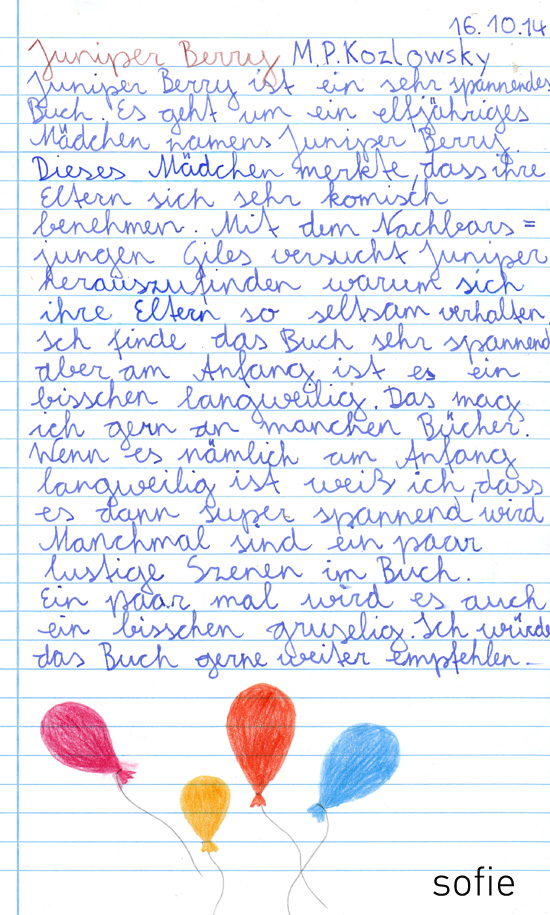 16.10.14
Juniper Berry M.P.Kozlowsky
Juniper Berry ist ein sehr spannendes
Buch. Es geht um ein elfjähriges
Mädchen namens Juniper Berry.
Dieses Mädchen merkte, dass ihre
Eltern sich sehr komisch
benehmen. Mit dem Nachbars=
jungen Giles versucht Juniper
herauszufinden warum sich
ihre Eltern so seltsam verhalten.
Ich finde das Buch sehr spannend
aber am Anfang ist es ein
bisschen langweilig. Das mag
ich gern an manchen Bücher.
Wenn es nämlich am Anfang
langweilig ist weiß ich, dass
es dann super spannend wird.
Manchmal sind ein paar
lustige Szenen im Buch.
Ein paar mal wird es auch
ein bisschen gruselig. Ich würde
das Buch gerne weiter empfehlen.
sofie